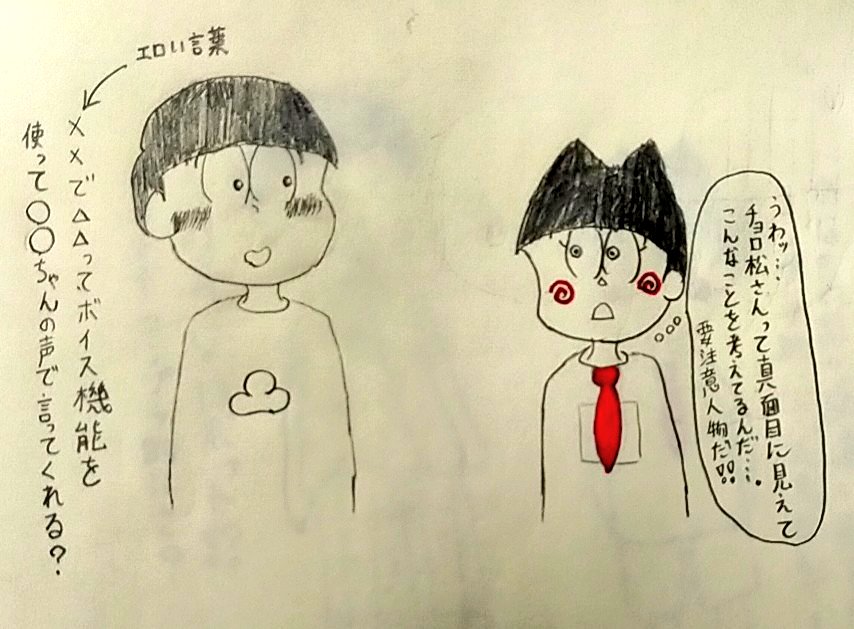 エロい言葉
××で△△ってボイス機能を
使って○○ちゃんの声で言ってくれる?
うわッ…
チョロ松さんって真面目に見えて
こんなことを考えてるんだ…。
要注意人物だ!!